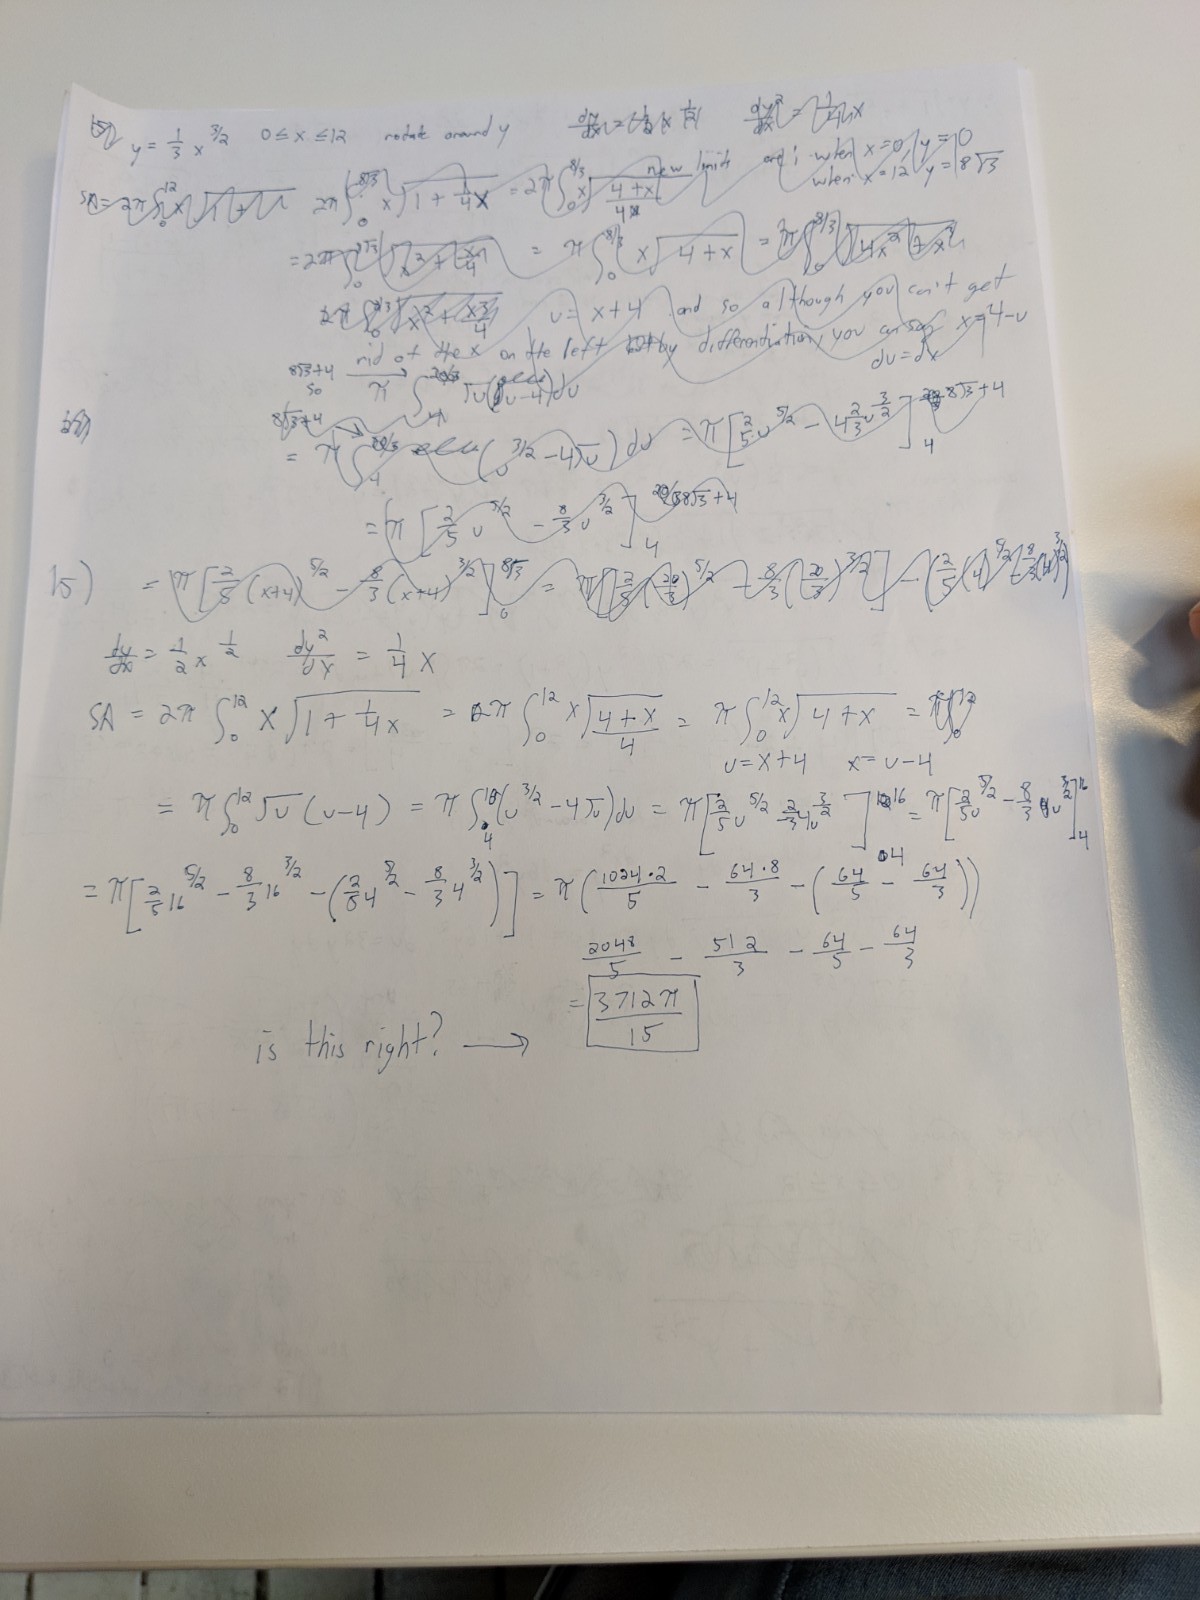 y = 1/3 x^3/2   0 ≤ x ≤ 12   rotate around y   dy/dx = 1/2 x^1/2   dy^2/dx = 1/4 x
new limits are: when x=0, y=0
when x=12, y=8√3
SA = 2π ∫_0^12 x √1+   2π ∫_0^8√3 x √(1 + 1/4x) = 2π ∫_0^8/3 x √((4+x)/4)
= 2π ∫_0^8√3 √(x^2 + x^3/4) = π ∫_0^8/3 x √(4+x) = π ∫_0^8/3 √(4x^2 + x^3)
2π ∫_0^8/3 √(x^2 + x^3/4)   u = x+4 and so although you can't get
rid of the x on the left by differentiation, you can say x = 4-u
du = dx
8√3+4
so   π ∫_4 √u (u-4) du
8√3+4
= π ∫_4^20/3 (u^3/2 - 4√u) du = π [2/5 u^5/2 - 4 2/3 u^3/2]_4^8√3+4
= π [2/5 u^5/2 - 8/3 u^3/2]_4^8√3+4
15) = π [2/5 (x+4)^5/2 - 8/3 (x+4)^3/2]_0^8√3 = π [2/5 (20/3)^5/2 - 8/3 (20/3)^3/2] - (2/5 (4)^5/2 - 8/3 (4)^3/2)
dy/dx = 1/2 x^1/2   dy^2/dx = 1/4 x
SA = 2π ∫_0^12 x √(1 + 1/4 x) = 2π ∫_0^12 x √((4+x)/4) = π ∫_0^12 x √(4+x) = π ∫_0^12
u = x+4   x = u-4
= π ∫_0^12 √u (u-4) = π ∫_4^16 (u^3/2 - 4√u) du = π [2/5 u^5/2 - 2/3 4u^3/2]^16_4 = π [2/5 u^5/2 - 8/3 u^3/2]_4^16
= π [2/5 16^5/2 - 8/3 16^3/2 - (2/5 4^5/2 - 8/3 4^3/2)] = π (1024·2/5 - 64·8/3 - (64/5 - 64/3))
2048/5 - 512/3 - 64/5 - 64/3
= 3712π/15
is this right? →